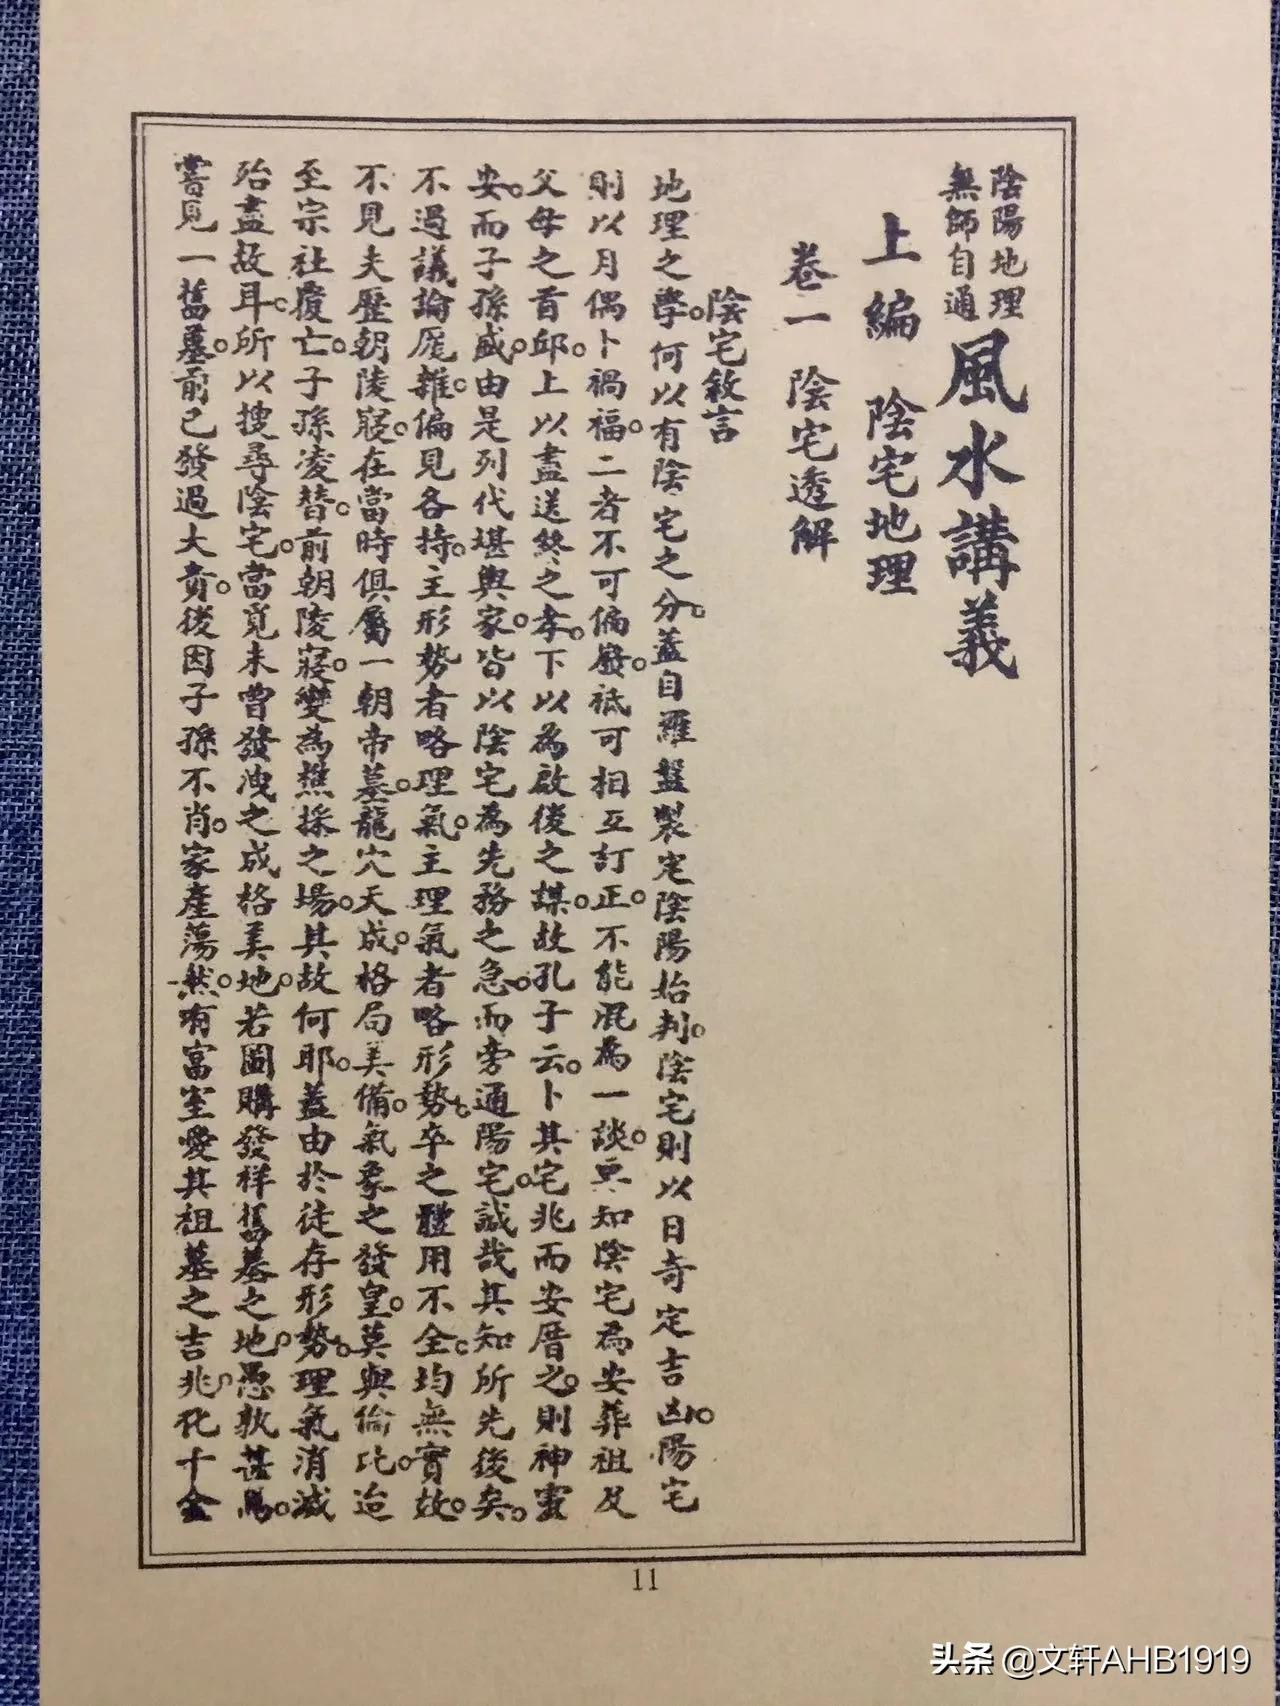 陰陽地理
無師自通
風水講義
上編　陰宅地理
卷一　陰宅透解
陰宅敘言
地理之學。何以有陰宅之分。蓋自羅盤製定陰陽始判。陰宅則以日奇定吉凶。陽宅
則以月偶卜禍福。二者不可偏廢。祗可相互訂正。不能混為一談。要知陰宅為安葬祖及
父母之首邱。上以盡送終之孝。下以為啟後之謀。故孔子云。卜其宅兆而安厝之。則神靈
安。而子孫盛。由是列代堪輿家。皆以陰宅為先務之急。而旁通陽宅。誠哉其知所先後矣。
不過議論厖雜。偏見各持。主形勢者略理氣。主理氣者略形勢。卒之體用不全。均無實效。
不見夫歷朝陵寢。在當時俱屬一朝帝墓。龍穴天成。格局美備。氣象之發皇。莫與倫比。迨
至宗社覆亡。子孫凌替。前朝陵寢。變為樵採之場。其故何耶。蓋由於徒存形勢。理氣消滅
殆盡故耳。所以搜尋陰宅。當覓未曾發洩之成格美地。若圖購發祥舊墓之地。愚孰甚焉。
嘗見一舊墓。前已發過大貴。後因子孫不肖。家產蕩然。有富室愛其祖墓之吉兆。化千金
11
头条 @文轩AHB1919